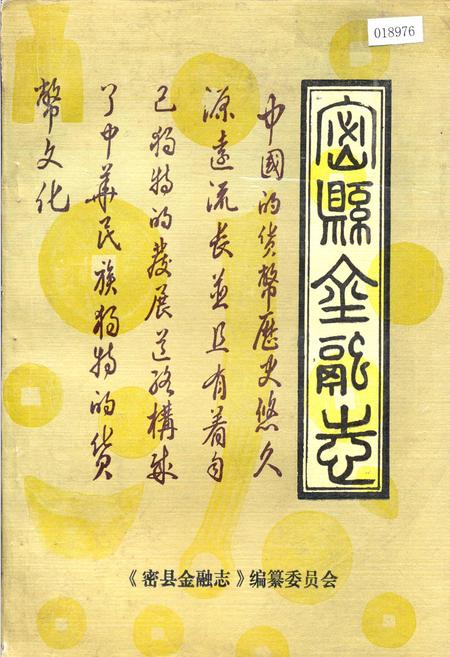 018976
密縣金融志
中國的货幣歷史悠久
源遠流长並且有着自
己独特的發展道路構成
了中華民族独特的货
幣文化
《密县金融志》编纂委员会